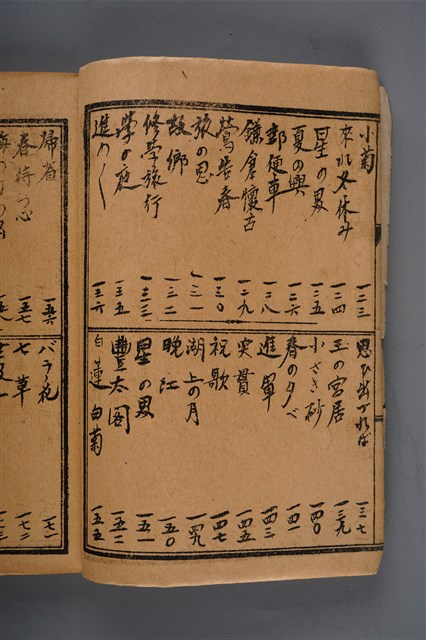 小菊 一二三
来れ冬休み 一二四
星の界 一二五
夏の興 一二六
郵便車 一二八
鎌倉懐古 一二九
鶯告春 一三〇
旅の思 一三一
故郷 一三二
修学旅行 一三三
学の庭 一三五
進め〱 一三六
思ひ出づれば 一三七
玉の宮居 一三九
小さき砂 一四〇
春の夕べ 一四一
進軍 一四三
実貫 一四五
祝歌 一四七
湖上の月 一四九
晩江 一五〇
星の界 一五一
豊太閤 一五二
白蓮白菊 一五五
帰省 一五六
春待つ心 一五七
バラの花 一七一
七草 一七二